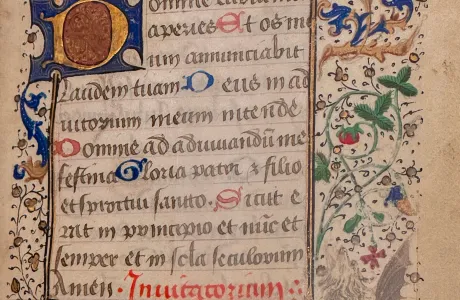 Domine labia mea
aperies Et os me
um annunciabit
laudem tuam Deus in ad
iutorium meum intende
Domine ad adiuvandum me
festina Gloria patri & filio
et spiritui sancto. Sicut e
rat in principio et nunc et
semper et in scla seculorum
Amen. Invitatorium